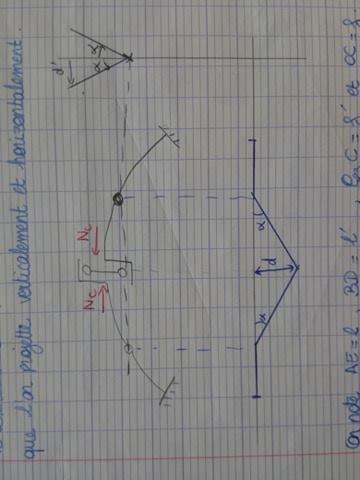 que l'on projette verticalement et horizontalement.
d'
α
α
Nc
Nc
α
d
α
on note AE = l, BD = l', et OC = f.